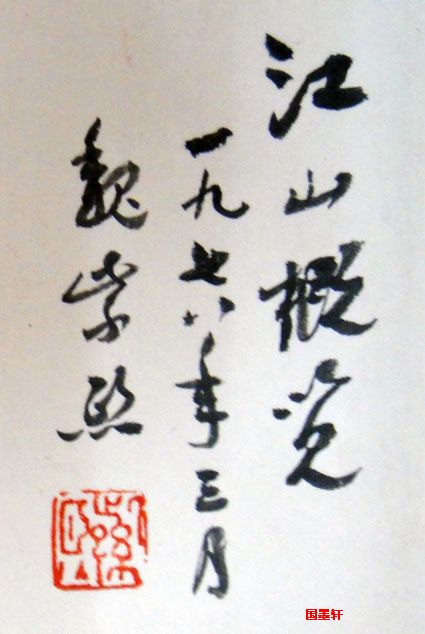 江山概览
一九七八年三月
魏紫熙
国墨轩